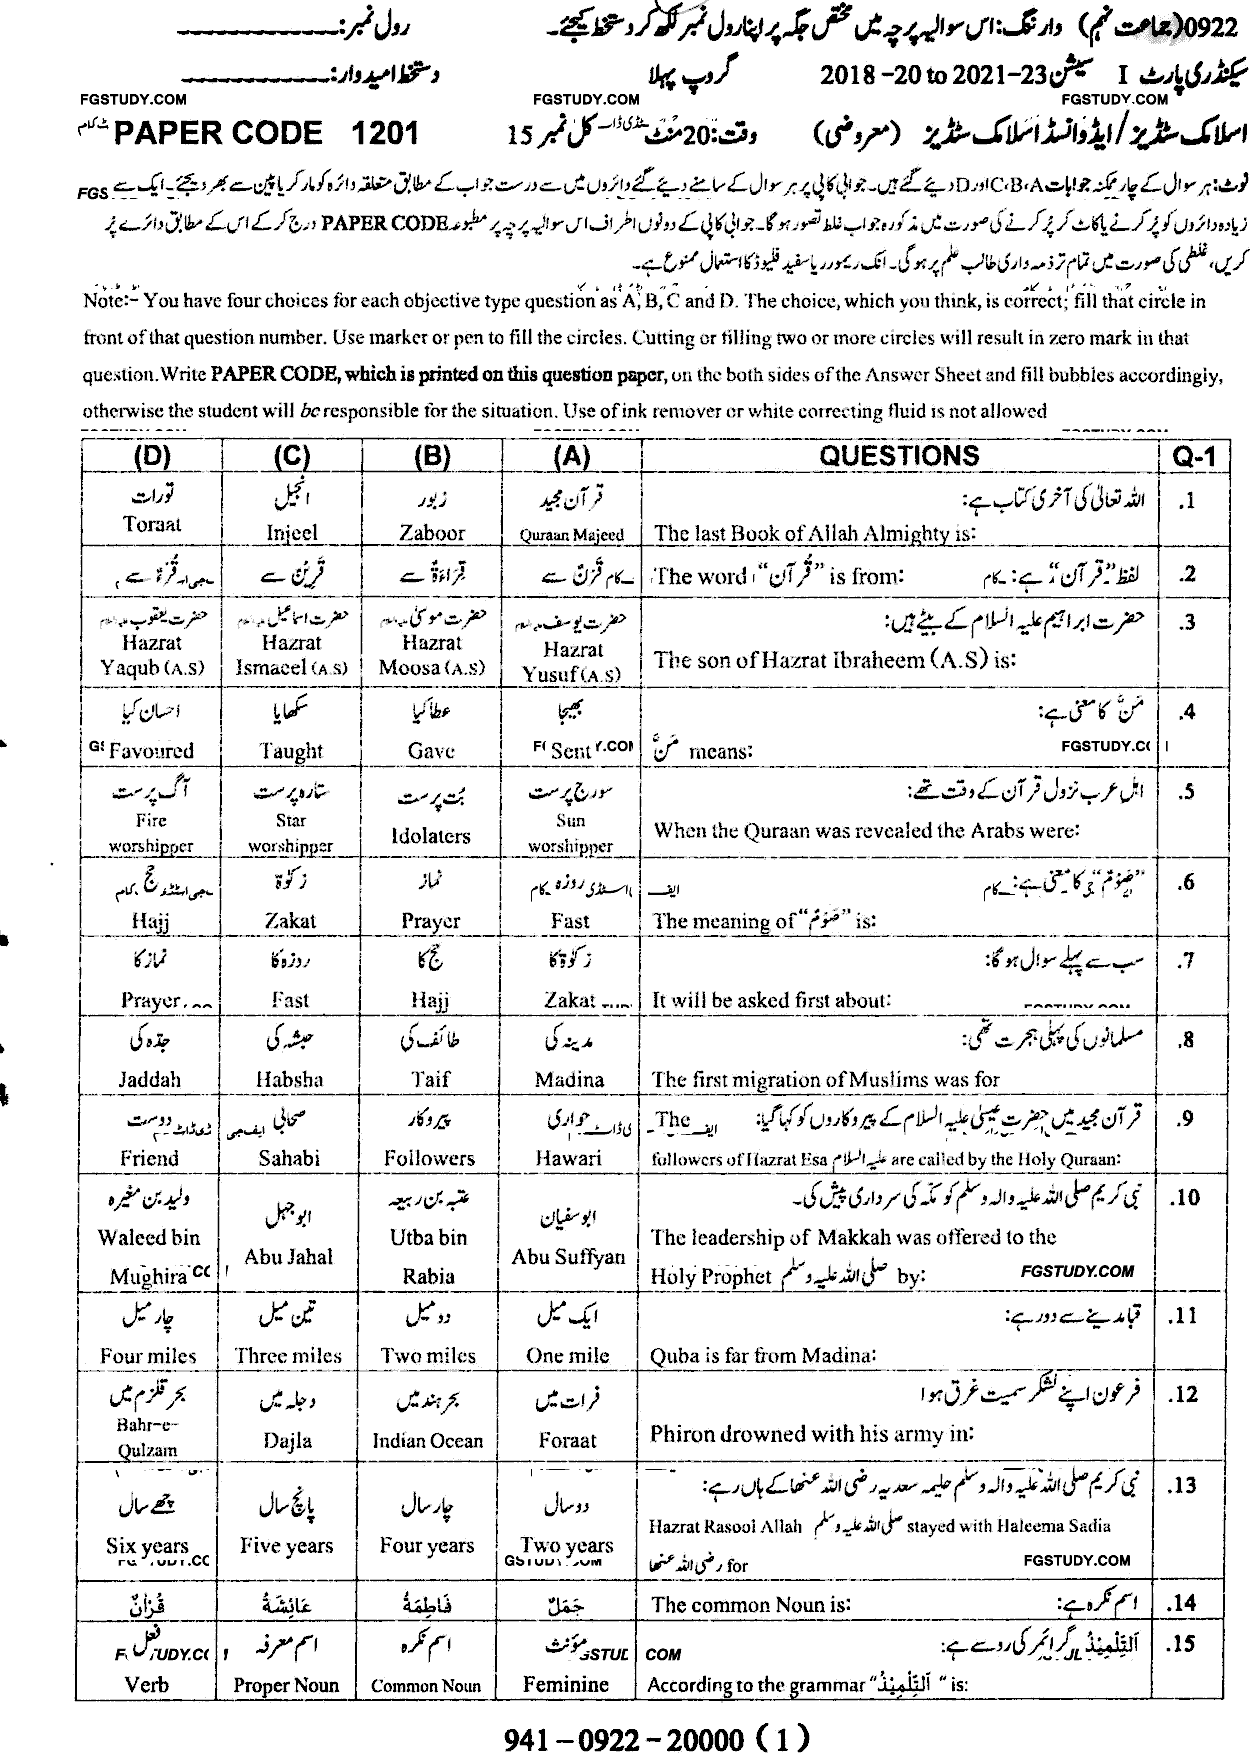 0922 (جماعت نہم) وارننگ: اس سوالیہ پرچہ میں مختص جگہ پر اپنا رول نمبر لکھ کر دستخط کیجئے۔ رول نمبر:
سیکنڈری پارٹ I سیشن 2018-20 to 2021-23 گروپ پہلا دستخط امیدوار:
FGSTUDY.COM FGSTUDY.COM FGSTUDY.COM
اسلامک سٹڈیز/ایڈوانسڈ اسلامک سٹڈیز (معروضی) وقت: 20 منٹ کل نمبر 15 PAPER CODE 1201
نوٹ: ہر سوال کے چار ممکنہ جوابات A،B،C اور D دیئے گئے ہیں۔ جوابی کاپی پر ہر سوال کے سامنے دیئے گئے دائروں میں سے درست جواب کے مطابق متعلقہ دائرہ کو مارکر یا پین سے بھر دیجئے۔ ایک سے
زیادہ دائروں کو پُر کرنے یا کاٹ کر پُر کرنے کی صورت میں مذکورہ جواب غلط تصور ہوگا۔ جوابی کاپی کے دونوں اطراف اس سوالیہ پرچہ پر مطبوعہ PAPER CODE درج کرکے اس کے مطابق دائرے پُر
کریں، غلطی کی صورت میں تمام تر ذمہ داری طالب علم پر ہوگی۔ انک ریموور یا سفید فلیوڈ کا استعمال ممنوع ہے۔
Note:- You have four choices for each objective type question as A, B, C and D. The choice, which you think, is correct; fill that circle in
front of that question number. Use marker or pen to fill the circles. Cutting or filling two or more circles will result in zero mark in that
question. Write PAPER CODE, which is printed on this question paper, on the both sides of the Answer Sheet and fill bubbles accordingly,
otherwise the student will be responsible for the situation. Use of ink remover or white correcting fluid is not allowed
(D) (C) (B) (A) QUESTIONS Q-1
تورات انجیل زبور قرآن مجید اللہ تعالیٰ کی آخری کتاب ہے: .1
Toraat Injeel Zaboor Quraan Majeed The last Book of Allah Almighty is:
قُرْءٌ سے قَرِیْنٌ سے قِرَاءَۃٌ سے قَرْنٌ سے The word "قُرآن" is from: لفظ "قرآن" ہے: .2
حضرت یعقوب حضرت اسماعیل حضرت موسیٰ حضرت یوسف حضرت ابراہیم علیہ السلام کے بیٹے ہیں: .3
Hazrat Hazrat Hazrat Hazrat The son of Hazrat Ibraheem (A.S) is:
Yaqub (A.S) Ismaeel (A.S) Moosa (A.S) Yusuf (A.S)
احسان کیا سکھایا عطا کیا بھیجا مَنَّ کا معنی ہے: .4
Favoured Taught Gave Sent مَنَّ means: FGSTUDY.CO
آگ پرست ستارہ پرست بُت پرست سورج پرست اہل عرب نزول قرآن کے وقت تھے: .5
Fire Star Idolaters Sun When the Quraan was revealed the Arabs were:
worshipper worshipper worshipper
حج زکوٰۃ نماز روزہ "صَوْمٌ" کا معنی ہے: .6
Hajj Zakat Prayer Fast The meaning of "صَوْمٌ" is:
نماز کا روزہ کا حج کا زکوٰۃ کا سب سے پہلے سوال ہوگا: .7
Prayer Fast Hajj Zakat It will be asked first about:
جدّہ کی حبشہ کی طائف کی مدینہ کی مسلمانوں کی پہلی ہجرت تھی: .8
Jaddah Habsha Taif Madina The first migration of Muslims was for
دوست صحابی پیروکار حواری The قرآن مجید میں حضرت عیسیٰ علیہ السلام کے پیروکاروں کو کہا گیا: .9
Friend Sahabi Followers Hawari followers of Hazrat Esa علیہ السلام are called by the Holy Quraan:
ولید بن مغیرہ ابوجہل عتبہ بن ربیعہ ابوسفیان نبی کریم صلی اللہ علیہ والہ وسلم کو مکہ کی سرداری پیش کی۔ .10
Waleed bin Abu Jahal Utba bin Abu Suffyan The leadership of Makkah was offered to the
Mughira Rabia Holy Prophet صلی اللہ علیہ وسلم by: FGSTUDY.COM
چار میل تین میل دو میل ایک میل قبا مدینے سے دور ہے: .11
Four miles Three miles Two miles One mile Quba is far from Madina:
بحر قلزم میں دجلہ میں بحر ہند میں فرات میں فرعون اپنے لشکر سمیت غرق ہوا .12
Bahr-e-Qulzam Dajla Indian Ocean Foraat Phiron drowned with his army in:
چھے سال پانچ سال چار سال دو سال نبی کریم صلی اللہ علیہ والہ وسلم حلیمہ سعدیہ رضی اللہ عنھا کے ہاں رہے: .13
Six years Five years Four years Two years Hazrat Rasool Allah صلی اللہ علیہ وسلم stayed with Haleema Sadia
رضی اللہ عنھا for FGSTUDY.COM
قُرْاٰنٌ عَائِشَةُ فَاطِمَةُ جَمَلٌ The common Noun is: اسم نکرہ ہے: .14
فعل اسم معرفہ اسم نکرہ مؤنث اَلتِّلْمِیْذُ گرائمر کی رو سے ہے: .15
Verb Proper Noun Common Noun Feminine According to the grammar "اَلتِّلْمِیْذُ" is:
941-0922-20000 (1)